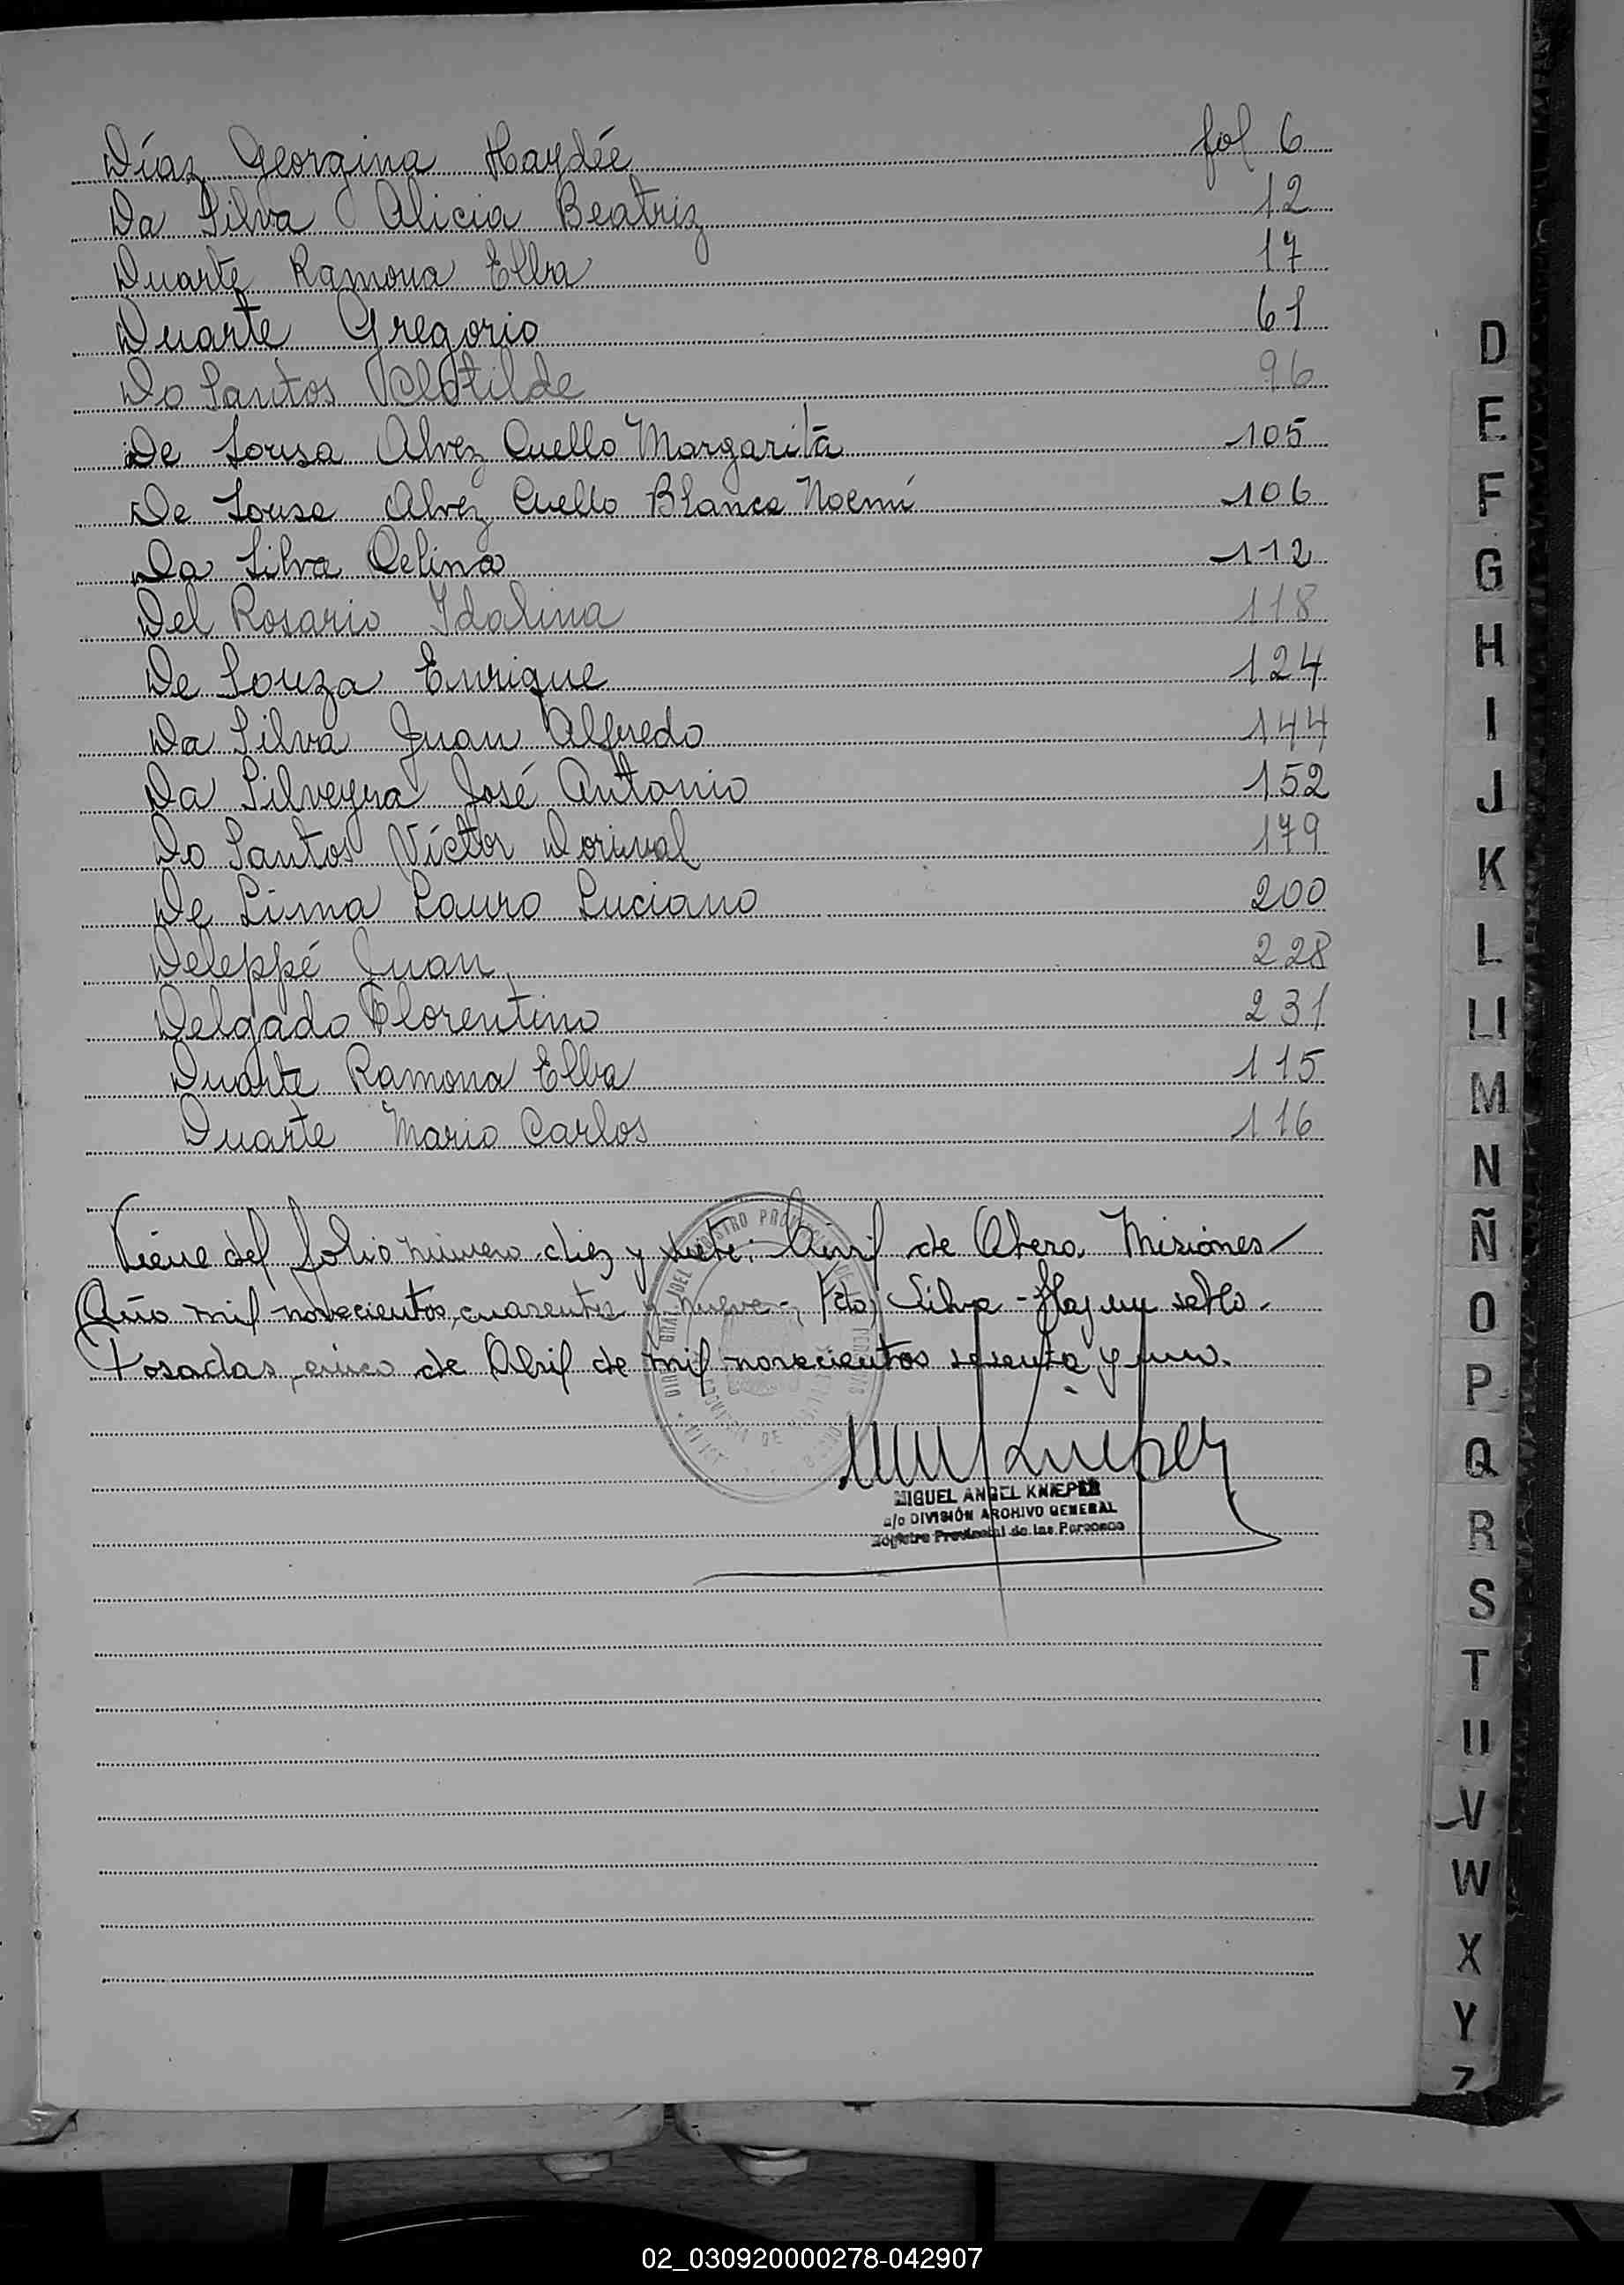 Díaz Georgina Haydée fol 6
Da Silva Alicia Beatriz 12
Duarte Ramona Elba 17
Duarte Gregorio 61
Do Santos Clotilde 96
De Sousa Alvez Cuello Margarita 105
De Sousa Alvez Cuello Blanca Noemí 106
Da Silva Delina 112
Del Rosario Idalina 118
De Souza Enrique 124
Da Silva Juan Alfredo 144
Da Silveyra José Antonio 152
Do Santos Víctor Dorival 179
De Lima Lauro Luciano 200
Deleppé Juan 228
Delgado Florentino 231
Duarte Ramona Elba 115
Duarte Mario Carlos 116
Viene del folio número diez y siete: de Obera Misiones
Año mil novecientos cuarenta y nueve-, Fdo) Silva - Hay un sello.
Posadas, cinco de Abril de mil novecientos sesenta y uno.
MIGUEL ANGEL KNIEPER
a/c DIVISIÓN ARCHIVO GENERAL
Registro Provincial de las Personas
D
E
F
G
H
I
J
K
L
Ll
M
N
Ñ
O
P
Q
R
S
T
U
V
W
X
Y
Z
02_030920000278-042907